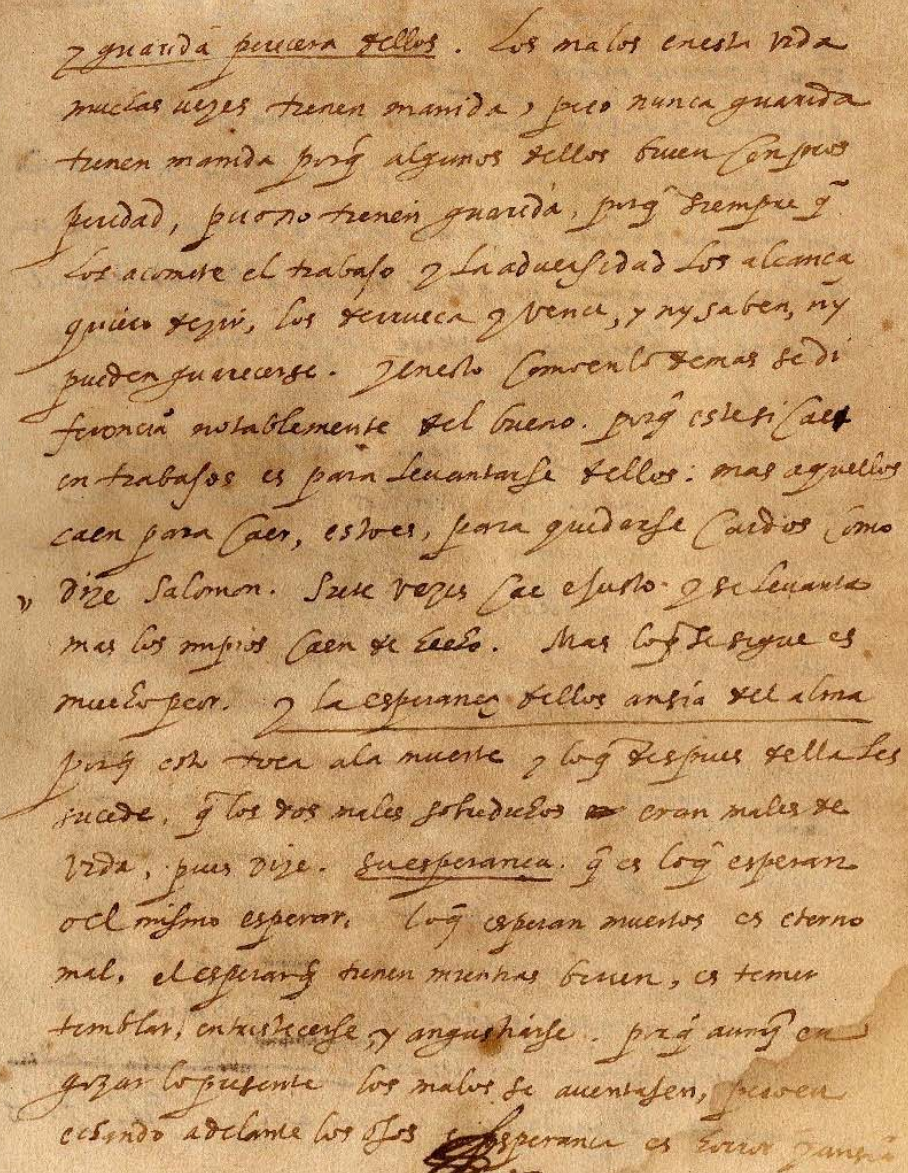 y guarida perecera dellos. Los malos enesta vida
muchas vezes tienen manida, pero nunca guarida
tienen manida porq̃ algunos dellos biuen Con pros
peridad, pero no tienen guarida, porq̃ siempre q̃
los acomete el trabajo y La aduersidad Los alcança
quiero dezir, los derrueca y vence, y ny saben, ny
pueden guarecerse. y enesto Como en lo demas se di
ferencia notablemente del bueno. porq̃ este si Cae
en trabajos es para Leuantarse dellos: mas aquellos
caen para Caer, esto es, para quedarse Caidos Como
" dize Salomon. Siete vezes Cae el justo y se Leuanta
mas los impios Caen de hecho. Mas loq̃ se sigue es
mucho peor. y la esperança dellos ansia del alma
porq̃ esto toca ala muerte y loq̃ despues della Les
sucede, q̃ los dos males sobredichos eran males de
vida, pues dize. su esperança. q̃ es loq̃ esperan
o el mismo esperar. loq̃ esperan muertos es eterno
mal, el esperar q̃ tienen mientras biuen, es temer
temblar, entristecerse, y angustiarse. porq̃ aunq̃ en
gozar lo presente los malos se auentajen, pero en
echando adelante los ojos esperança es horror